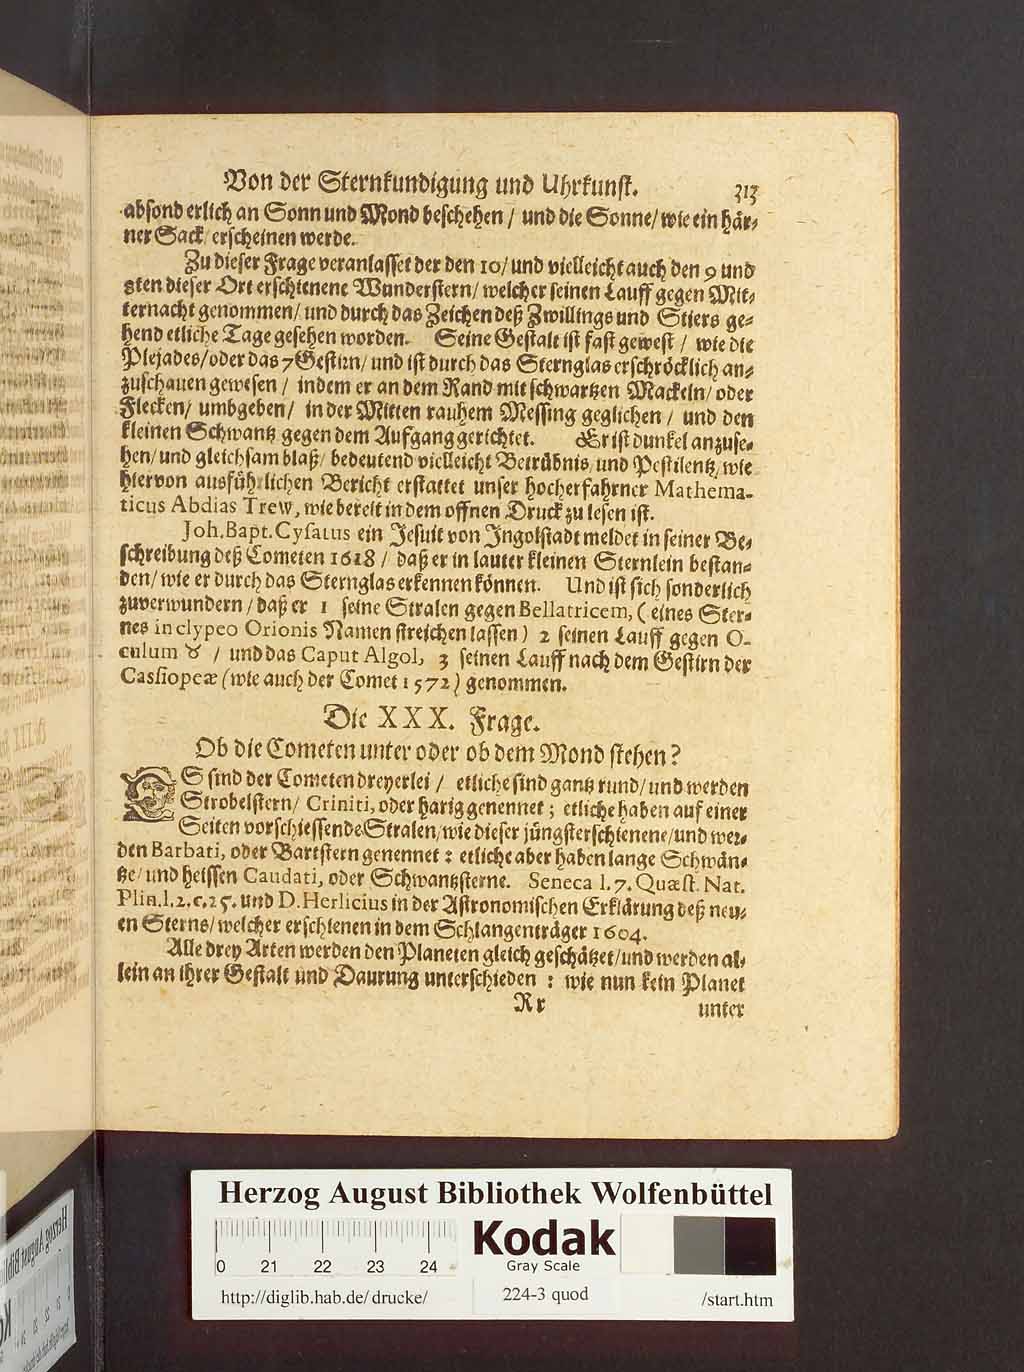 Von der Sternkundigung und Uhrkunst. 313
absonderlich an Sonn und Mond beschehen / und die Sonne / wie ein här-
ner Sack / erscheinen werde.
Zu dieser Frage veranlasset der den 10 / und vielleicht auch den 9 und
8ten dieser Ort erschienene Wunderstern / welcher seinen Lauff gegen Mit-
ternacht genommen / und durch das Zeichen deß Zwillings und Stiers ge-
hend etliche Tage gesehen worden. Seine Gestalt ist fast gewest / wie die
Plejades / oder das 7 Gestirn / und ist durch das Sternglas erschröcklich an-
zuschauen gewesen / indem er an dem Rand mit schwartzen Mackeln / oder
Flecken / umbgeben / in der Mitten rauhem Messing geglichen / und den
kleinen Schwantz gegen dem Aufgang gerichtet. Er ist dunkel anzuse-
hen / und gleichsam blaß / bedeutend vielleicht Betrübnis und Pestilentz / wie
hiervon ausführlichen Bericht erstattet unser hocherfahrner Mathema-
ticus Abdias Trew, wie bereit in dem offnen Druck zu lesen ist.
Joh. Bapt. Cysatus ein Jesuit von Jngolstadt meldet in seiner Be-
schreibung deß Cometen 1618 / daß er in lauter kleinen Sternlein bestan-
den / wie er durch das Sternglas erkennen können. Und ist sich sonderlich
zuverwundern / daß er 1 seine Stralen gegen Bellatricem, (eines Ster-
nes in clypeo Orionis Namen streichen lassen) 2 seinen Lauff gegen O-
culum ♉ / und das Caput Algol, 3 seinen Lauff nach dem Gestirn der
Cassiopeæ (wie auch der Comet 1572) genommen.
Die XXX. Frage.
Ob die Cometen unter oder ob dem Mond stehen?
ES sind der Cometen dreyerlei / etliche sind gantz rund / und werden
Strobelstern / Criniti, oder harig genennet; etliche haben auf einer
Seiten vorschiessende Stralen / wie dieser jüngsterschienene / und wer-
den Barbati, oder Bartstern genennet: etliche aber haben lange Schwän-
tze / und heissen Caudati, oder Schwantzsterne. Seneca l. 7. Quæst. Nat.
Plin. l. 2. c. 25. und D. Herlicius in der Astronomischen Erklärung deß neu-
en Sterns / welcher erschienen in dem Schlangenträger 1604.
Alle drey Arten werden den Planeten gleich geschätzet / und werden al-
lein an ihrer Gestalt und Daurung unterschieden: wie nun kein Planet
Rr unter
Herzog August Bibliothek Wolfenbüttel
0 21 22 23 24
Kodak
Gray Scale
http://diglib.hab.de/ drucke/
224-3 quod
/start.htm